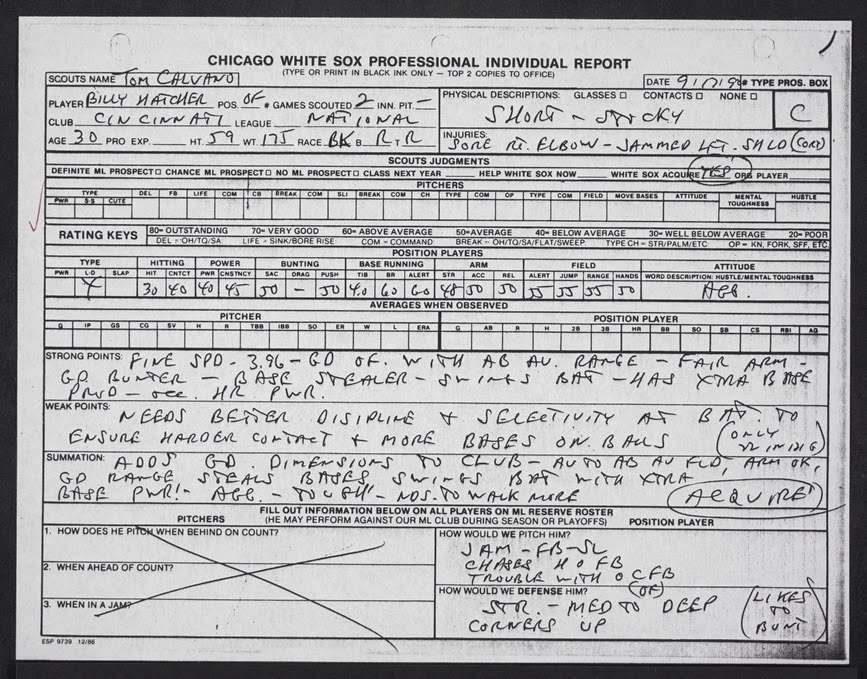 CHICAGO WHITE SOX PROFESSIONAL INDIVIDUAL REPORT
(TYPE OR PRINT IN BLACK INK ONLY — TOP 2 COPIES TO OFFICE)
SCOUTS NAME TOM CALVANO
DATE 9/17/9 # TYPE PROS. BOX
PLAYER BILLY HATCHER POS. OF # GAMES SCOUTED 2 INN. PIT. —
PHYSICAL DESCRIPTIONS: GLASSES □ CONTACTS □ NONE □
CLUB CINCINNATI LEAGUE NATIONAL
SHORT - STOCKY
C
AGE 30 PRO EXP. HT. 59 WT 175 RACE BK B R T R
INJURIES: SORE RT. ELBOW - JAMMED LFT. SHLD
SCOUTS JUDGMENTS
DEFINITE ML PROSPECT □ CHANCE ML PROSPECT □ NO ML PROSPECT □ CLASS NEXT YEAR HELP WHITE SOX NOW WHITE SOX ACQUIRE YES ORG PLAYER
PITCHERS
TYPE DEL FB LIFE COM CB BREAK COM SLI BREAK COM CH TYPE COM OP TYPE COM FIELD MOVE BASES ATTITUDE MENTAL TOUGHNESS HUSTLE
PWR S-S CUTE
RATING KEYS 80= OUTSTANDING 70= VERY GOOD 60= ABOVE AVERAGE 50=AVERAGE 40= BELOW AVERAGE 30= WELL BELOW AVERAGE 20= POOR
DEL = OH/TQ/SA LIFE = SINK/BORE RISE COM = COMMAND BREAK = OH/TQ/SA/FLAT/SWEEP TYPE CH = STR/PALM/ETC OP = KN, FORK, SFF, ETC
POSITION PLAYERS
TYPE HITTING POWER BUNTING BASE RUNNING ARM FIELD ATTITUDE
PWR L-D SLAP HIT CNTCT PWR CNSTNCY SAC DRAG PUSH TIB BR ALERT STR ACC REL ALERT JUMP RANGE HANDS WORD DESCRIPTION: HUSTLE/MENTAL TOUGHNESS
X 30 40 40 45 50 - 50 4.0 60 60 48 50 50 55 55 55 50 AGG.
AVERAGES WHEN OBSERVED
PITCHER POSITION PLAYER
G IP GS CG SV H TBB IBB SO ER W L ERA G AB R H 2B 3B HR BB SO SB CS RBI AG
STRONG POINTS: FINE SPD - 3.96 - GD OF. WITH AB AV. RANGE - FAIR ARM -
GD BUNTER - BASE STEALER - SWINGS BAT - HAS XTRA BASE
PROD - OCC. HR PWR.
WEAK POINTS: NEEDS BETTER DISCIPLINE + SELECTIVITY AT BAT. TO
ENSURE HARDER CONTACT + MORE BASES ON BALLS (ONLY 22 IN 121 G)
SUMMATION: ADDS GD. DIMENSIONS TO CLUB - AV TO AB AV FLD, ARM OK,
GD RANGE STEALS BASES SWINGS BAT WITH XTRA
BASE PWR! - AGG. - TOUGH! - NDS. TO WALK MORE (ACQUIRE!)
FILL OUT INFORMATION BELOW ON ALL PLAYERS ON ML RESERVE ROSTER
PITCHERS (HE MAY PERFORM AGAINST OUR ML CLUB DURING SEASON OR PLAYOFFS) POSITION PLAYER
1. HOW DOES HE PITCH WHEN BEHIND ON COUNT?
2. WHEN AHEAD OF COUNT?
3. WHEN IN A JAM?
HOW WOULD WE PITCH HIM?
JAM - FB - SL
CHASES HO FB
TROUBLE WITH O CFB
HOW WOULD WE DEFENSE HIM? (OF)
STR. - MED TO DEEP
CORNERS UP
(LIKES TO BUNT)
ESP 9739 12/86